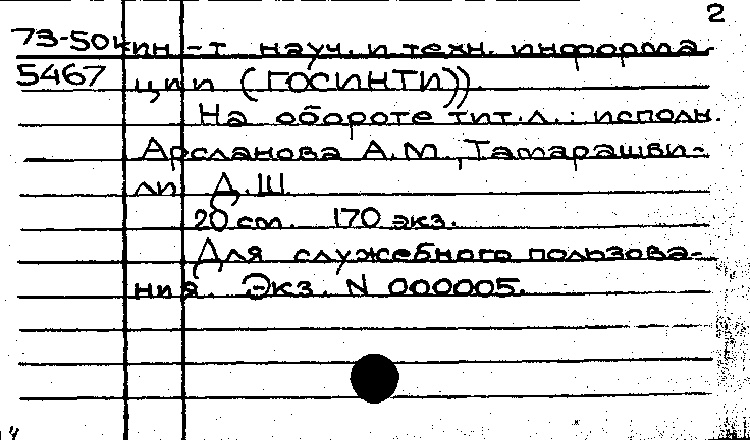 2
73-50к ин-т науч. и техн. информа-
5467 ции (ГОСИНТИ)).
На обороте тит.л.: исполн.
Арсланова А.М., Тамарашви-
ли Д.Ш.
20 см. 170 экз.
Для служебного пользова-
ния. Экз. N 000005.